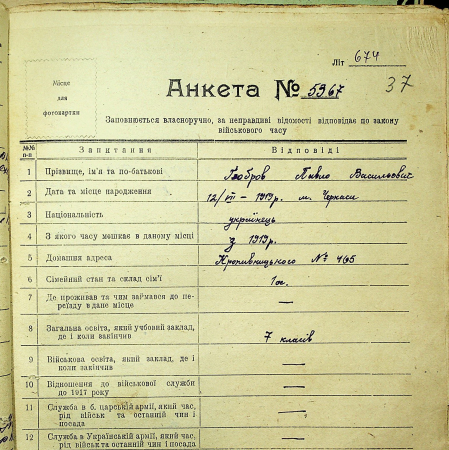 Літ 674
37
Місце
для
фотокартки
Анкета № 5967
Заповнюється власноручно, за неправдиві відомості відповідає по закону
військового часу
№№ п-п Запитання Відповіді
1 Прізвище, ім'я та по-батькові Павло Васильович
2 Дата та місце народження 12/VII – 1919 р. м. Черкаси
3 Національність українець
4 З якого часу мешкає в даному місці з 1919 р.
5 Домашня адреса Кропивницького № 465
6 Сімейний стан та склад сім'ї 1 ос.
7 Де проживав та чим займався до пе-
реїзду в дане місце —
8 Загальна освіта, який учбовий заклад,
де і коли закінчив 7 класів
9 Військова освіта, який заклад, де і
коли закінчив —
10 Відношення до військової служби
до 1917 року —
11 Служба в б. царській армії, який час,
рід військ та останній чин і
посада —
12 Служба в Українській армії, який час,
рід військ та останній чин і посада —